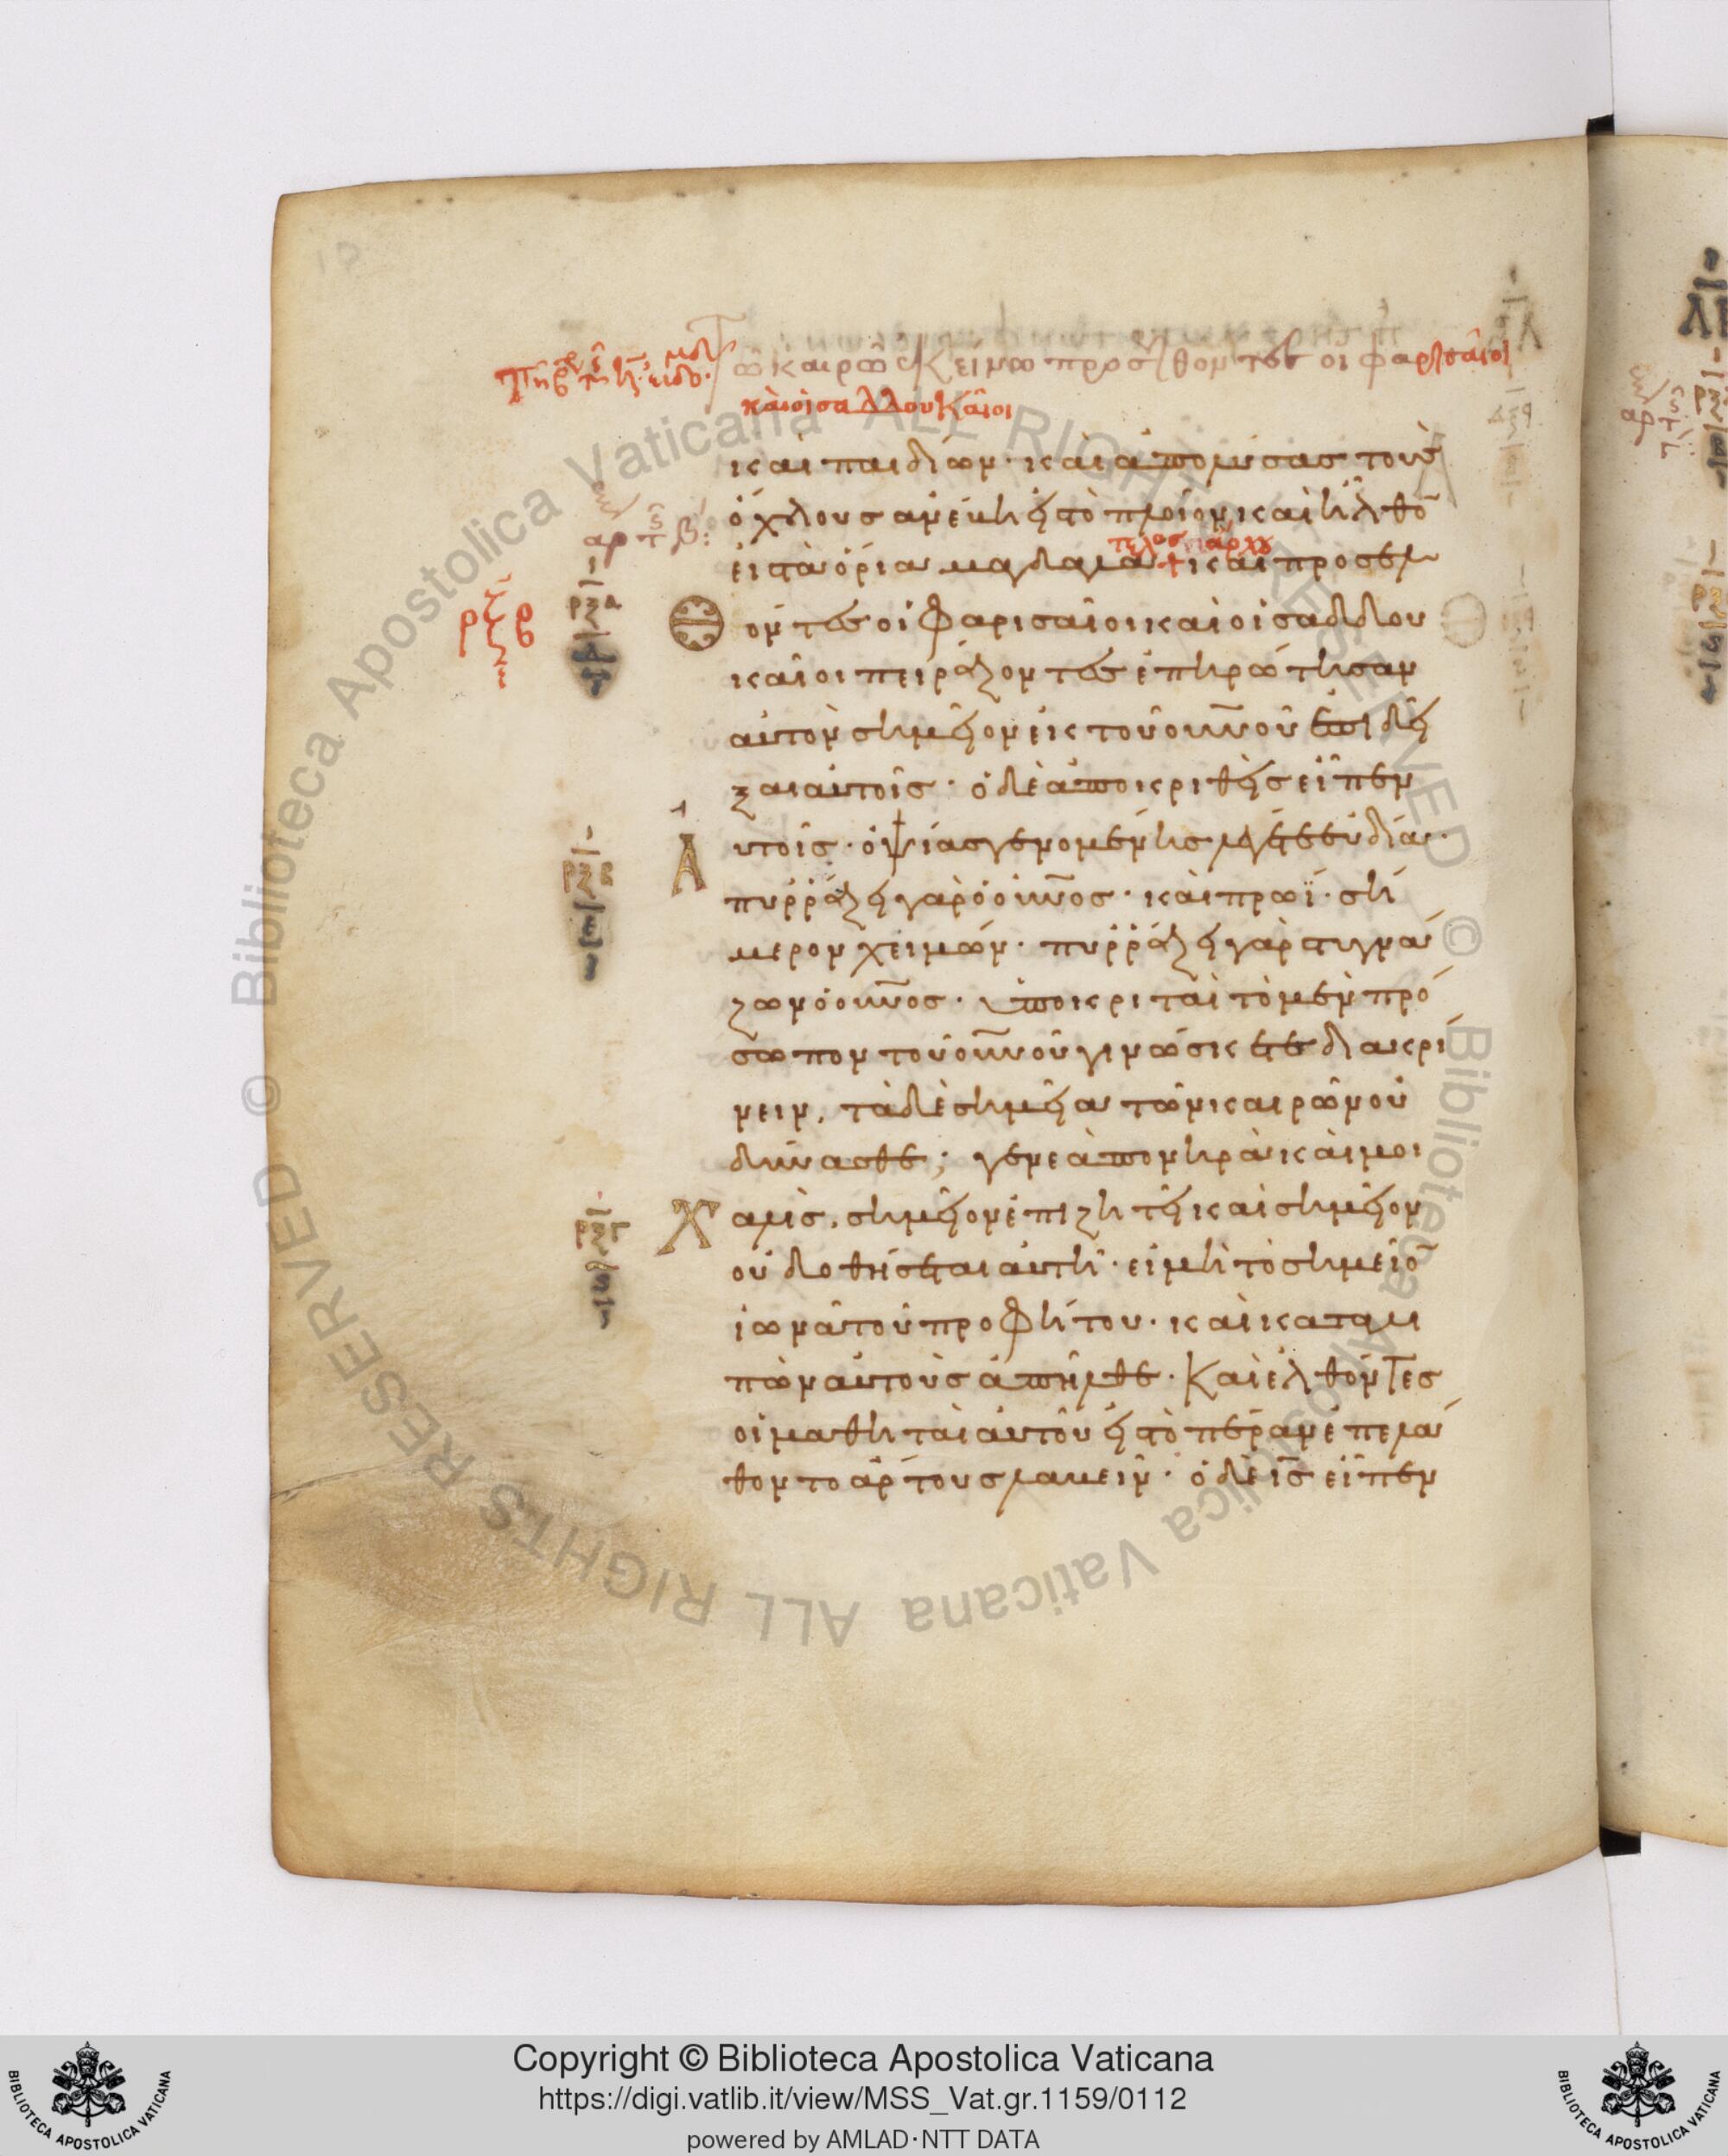 Τῶ καιρῶ ἐκείνω προσελθόντες οι φαρισαῖοι
καὶ οἱ σαδδουκαῖοι
και παιδίων· και ἀπολύσας τοὺς
ὄχλους ἀνέβη εἰς τὸ πλοίον· καὶ ἦλθο̅
εις τὰ ὅρια μαγδαλά + και προσελ
τέλος ἀρχ
Θ όντες οἱ φαρισαῖοι καὶ οἱ σαδδου
καῖοι πειράζοντες ἐπηρώτησαν
αὐτὸν σημεῖον ἐκ τοῦ ουνοῦ ἐπιδεῖ
ξαι αὐτοῖς· ὁ δὲ ἀποκριθεὶς εἶπεν
Ἀ υτοῖς· ὀψίας γενομένης λέγετε εὐδία·
πυρράζει γὰρ ὁ οὐνος· καὶ πρωῒ· σή
μερον χειμών· πυρράζει γὰρ στυγνά
ζων ὁ οὐνος· ὑποκριταὶ τὸ μὲν πρό
σωπον τοῦ ουνοῦ γινώσκετε διακρί
νειν, τὰ δὲ σημεῖα τῶν καιρῶν οὐ
δύνασθε; γενεὰ πονηρὰ καὶ μοι
Χ αλὶς, σημεῖον ἐπιζητεῖ καὶ σημεῖον
οὐ δοθήσεται αὐτῆ· εἰ μὴ τὸ σημεῖο̅
ἰωνᾶ τοῦ προφήτου· καὶ καταλι
πὼν αὐτοὺς ἀπῆλθε· Καὶ ἐλθόντες
οἱ μαθηταὶ αὐτοῦ εἰς τὸ πέραν ἐπελά
θοντο ἄρτους λαβεῖν· ὁ δὲ ις εἶπεν
ρξα
ρξβ
ρξγ
© Biblioteca Apostolica Vaticana ALL RIGHTS RESERVED © Biblioteca Apostolica Vaticana ALL RIGHTS RESERVED
Copyright © Biblioteca Apostolica Vaticana
https://digi.vatlib.it/view/MSS_Vat.gr.1159/0112
powered by AMLAD·NTT DATA
BIBLIOTECA APOSTOLICA VATICANA
BIBLIOTECA APOSTOLICA VATICANA